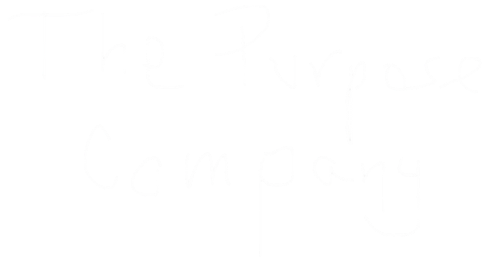 The Purpose
Company